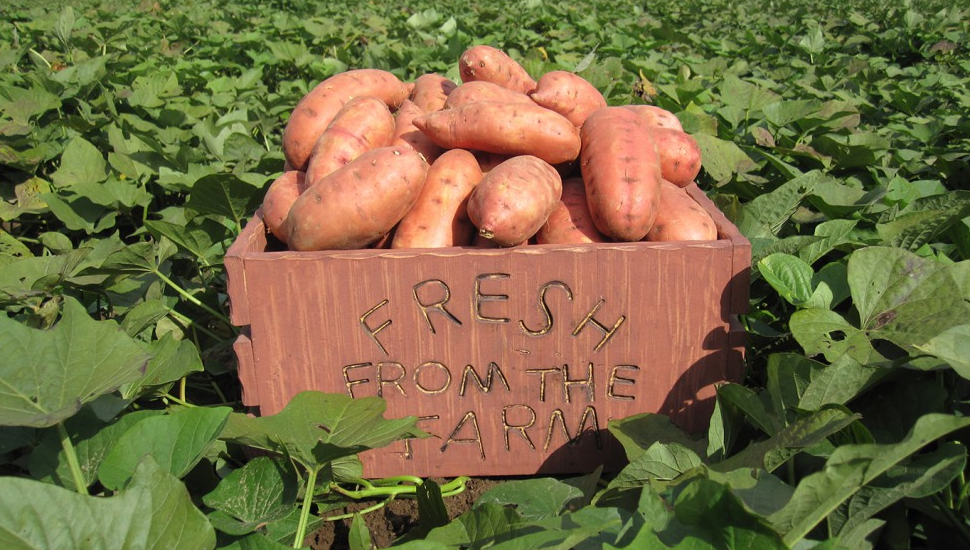 FRESH
FROM THE
FARM